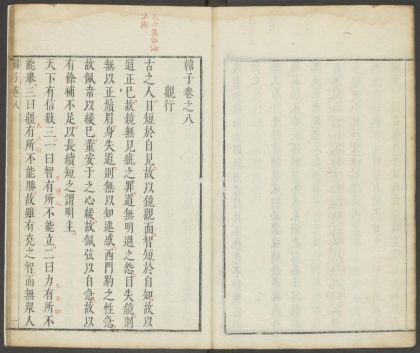 韓子卷之八
觀行
古之人目短於自見故以鏡觀面智短於自知故以
道正己故鏡無見疵之罪道無明過之怨目失鏡則
無以正鬚眉身失道則無以知迷惑西門豹之性急
故佩韋以緩己董安于之心緩故佩弦以自急故以
有餘補不足以長續短之謂明主
天下有信數三一曰智有所不能立二曰力有所不
能舉三曰彊有所不能勝故雖有堯之智而無衆人
韓子卷八
一